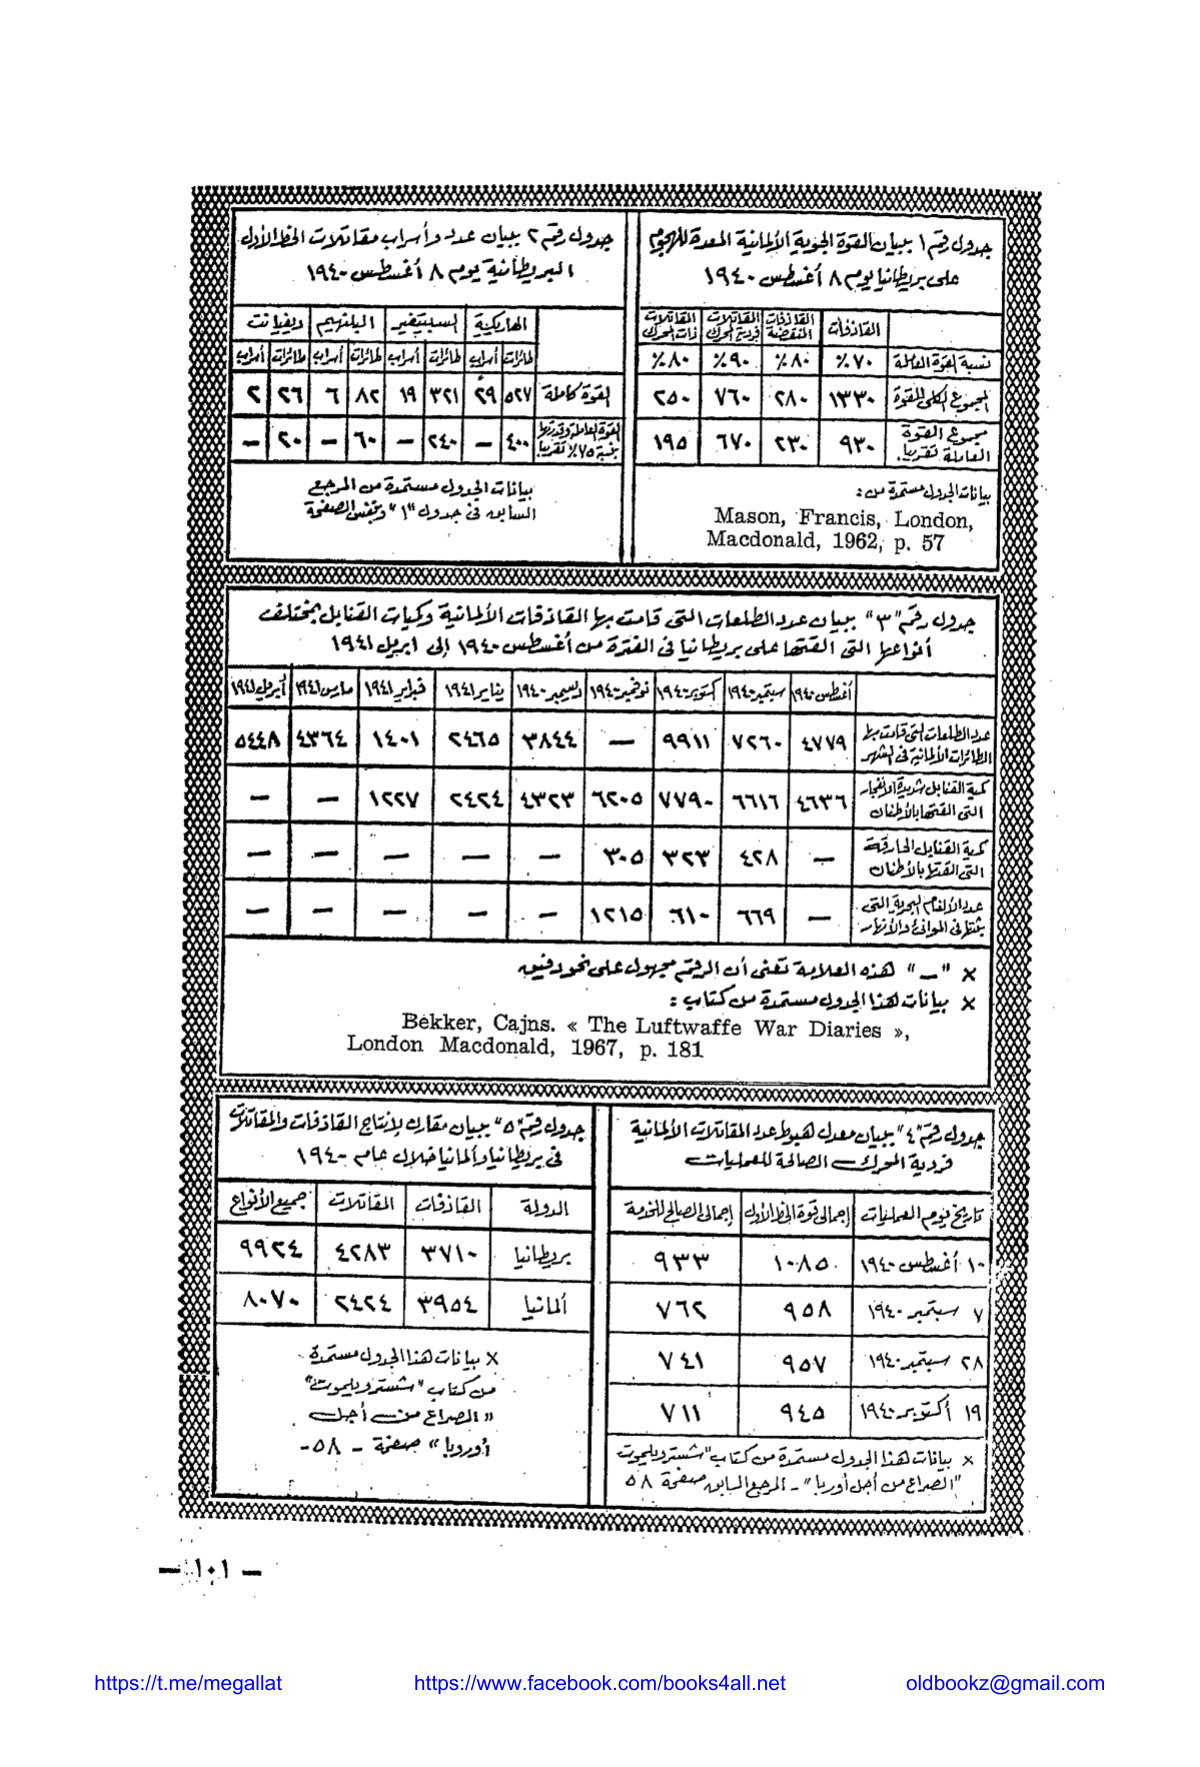 جدول رقم ١ ببيان القوة الجوية الألمانية المعدة للهجوم
على بريطانيا يوم ٨ أغسطس ١٩٤٠
القاذفات القاذفات المنقضة المقاتلات فردية المحرك المقاتلات ذات المحرك
نسبة القوة العاملة ٧٠٪ ٨٠٪ ٩٠٪ ٨٠٪
المجموع الكلى للقوة ١٣٣٠ ٢٨٠ ٧٦٠ ٢٥٠
مجموع القوة العاملة تقريبا. ٩٣٠ ٢٣٠ ٦٧٠ ١٩٥
بيانات الجدول مستمدة من :
Mason, Francis, London,
Macdonald, 1962, p. 57
جدول رقم ٢ ببيان عدد وأسراب مقاتلات الخط الأول
البريطانية يوم ٨ أغسطس ١٩٤٠
الهاريكية لسبيتفير البلنهيم ديفيانت
طائرات أسراب طائرات أسراب طائرات أسراب طائرات أسراب
لقوة كاملة ٥٢٧ ٢٩ ٣٢١ ١٩ ٨٢ ٦ ٢٦ ٢
لقوة العاملة وقدرتها بنسبة ٧٥٪ تقريبا ٤٠٠ — ٢٤٠ — ٦٠ — ٢٠ —
بيانات الجدول مستمدة من المرجع
السابق فى جدول "١" وبنفس الصفحة
جدول رقم "٣" ببيان عدد الطلعات التى قامت بها القاذفات الألمانية وكميات القنابل بمختلف
أنواعها التى القتها على بريطانيا فى الفترة من أغسطس ١٩٤٠ إلى ابريل ١٩٤١
أغسطس ١٩٤٠ سبتمبر ١٩٤٠ كتوبر ١٩٤٠ نوفمبر ١٩٤٠ ديسمبر ١٩٤٠ يناير ١٩٤١ فبراير ١٩٤١ مارس ١٩٤١ أبريل ١٩٤١
عدد الطلعات لتى قامت بها الطائرات الألمانية فى لشهر ٤٧٧٩ ٧٢٦٠ ٩٩١١ — ٣٨٤٤ ٢٤٦٥ ١٤٠١ ٤٣٦٤ ٥٤٤٨
كمية القنابل شديدة الانفجار التى القتها بالأطنان ٤٦٣٦ ٦٦١٦ ٧٧٩٠ ٦٢٠٥ ٤٣٢٣ ٢٤٢٤ ١٢٢٧ — —
كمية القنابل الحارقة التى القتها بالأطنان — ٤٢٨ ٣٢٣ ٣٠٥ — — — — —
عدد الألغام لبحرية التى بثتها فى الموانئ والأنهار — ٦٦٩ ٦١٠ ١٢١٥ — — — — —
× "—" هذه العلامة تعنى أن الرقم مجهول على نحو دقيق
× بيانات هذا الجدول مستمدة من كتاب :
Bekker, Cajns. « The Luftwaffe War Diaries »,
London Macdonald, 1967, p. 181
جدول رقم "٤" ببيان معدل هبوط عدد المقاتلات الألمانية
فردية المحرك الصالحة للعمليات
تاريخ يوم العمليات إجمالى قوة الخط الأول إجمالى الصالح للخدمة
١٠ أغسطس ١٩٤٠ ١٠٨٥ ٩٣٣
٧ سبتمبر ١٩٤٠ ٩٥٨ ٧٦٢
٢٨ سبتمبر ١٩٤٠ ٩٥٧ ٧٤١
١٩ أكتوبر ١٩٤٠ ٩٤٥ ٧١١
× بيانات هذا الجدول مستمدة من كتاب "شستر ويلموت
"الصراع من أجل أوربا" - المرجع السابق صفحة ٥٨
جدول رقم "٥" ببيان مقارن لإنتاج القاذفات والمقاتلات
فى بريطانيا وألمانيا خلال عام ١٩٤٠
الدولة القاذفات المقاتلات جميع الأنواع
بريطانيا ٣٧١٠ ٤٢٨٣ ٩٩٢٤
ألمانيا ٣٩٥٤ ٢٤٢٤ ٨٠٧٠
× بيانات هذا الجدول مستمدة
من كتاب "شستر ويلموت"
"الصراع من أجل
أوروبا" صفحة - ٥٨ -
— ١٠١ —
https://t.me/megallat https://www.facebook.com/books4all.net oldbookz@gmail.com